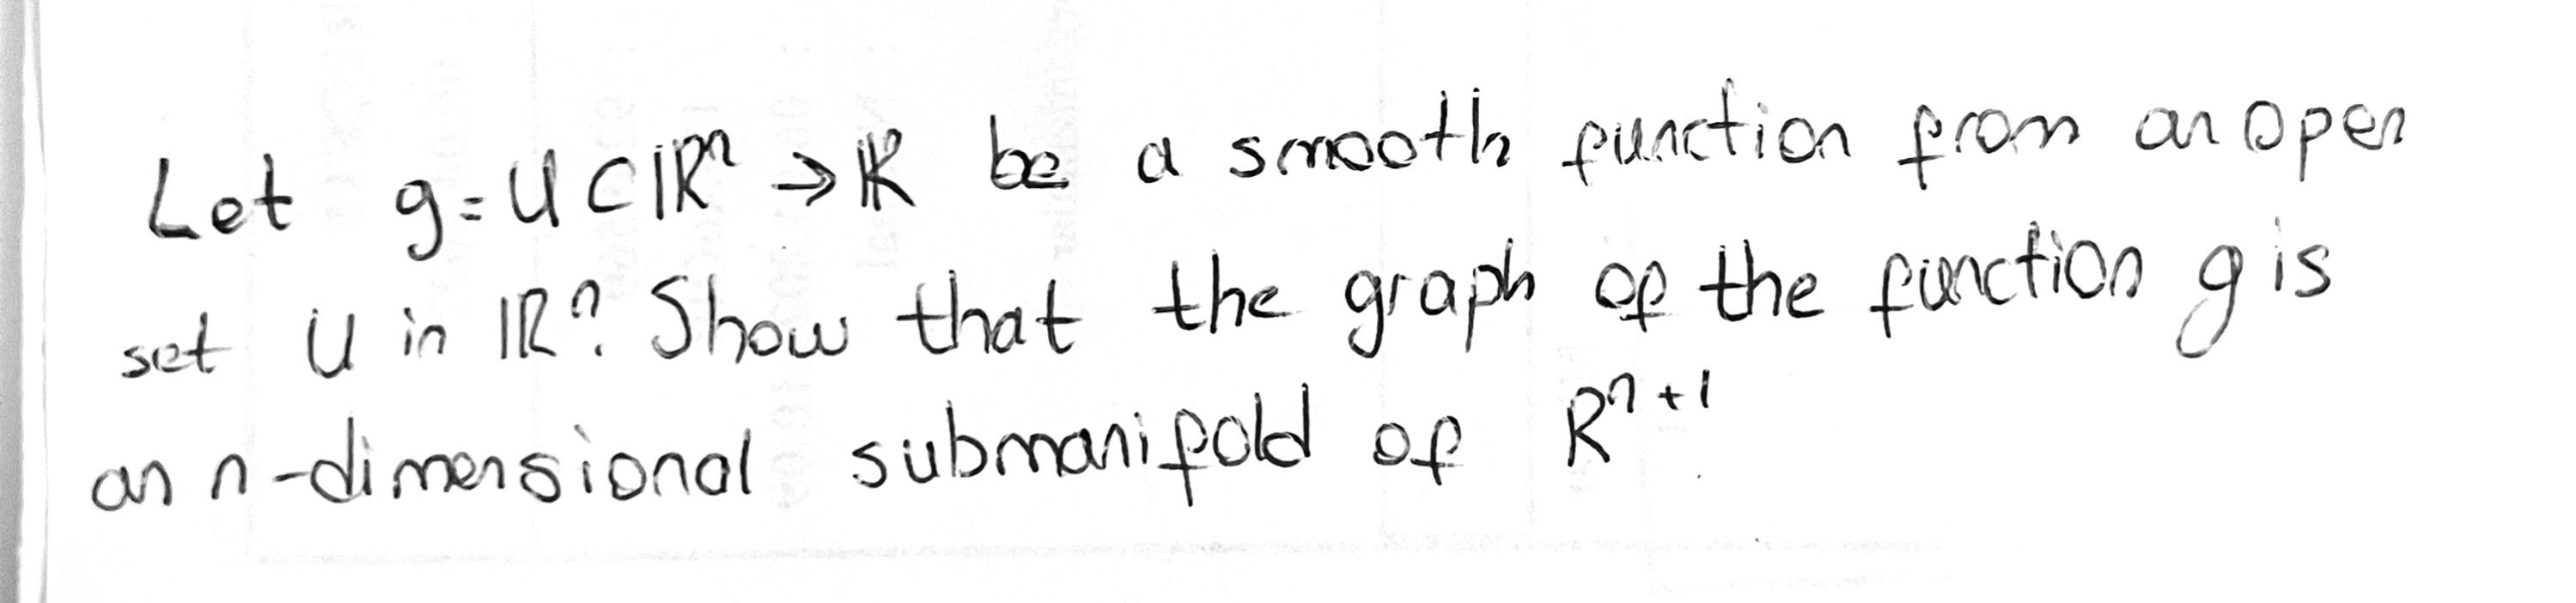 Let g=U⊂ℝⁿ→ℝ be a smooth function from an open
set U in ℝⁿ. Show that the graph of the function g is
an n-dimensional submanifold of Rⁿ⁺¹.